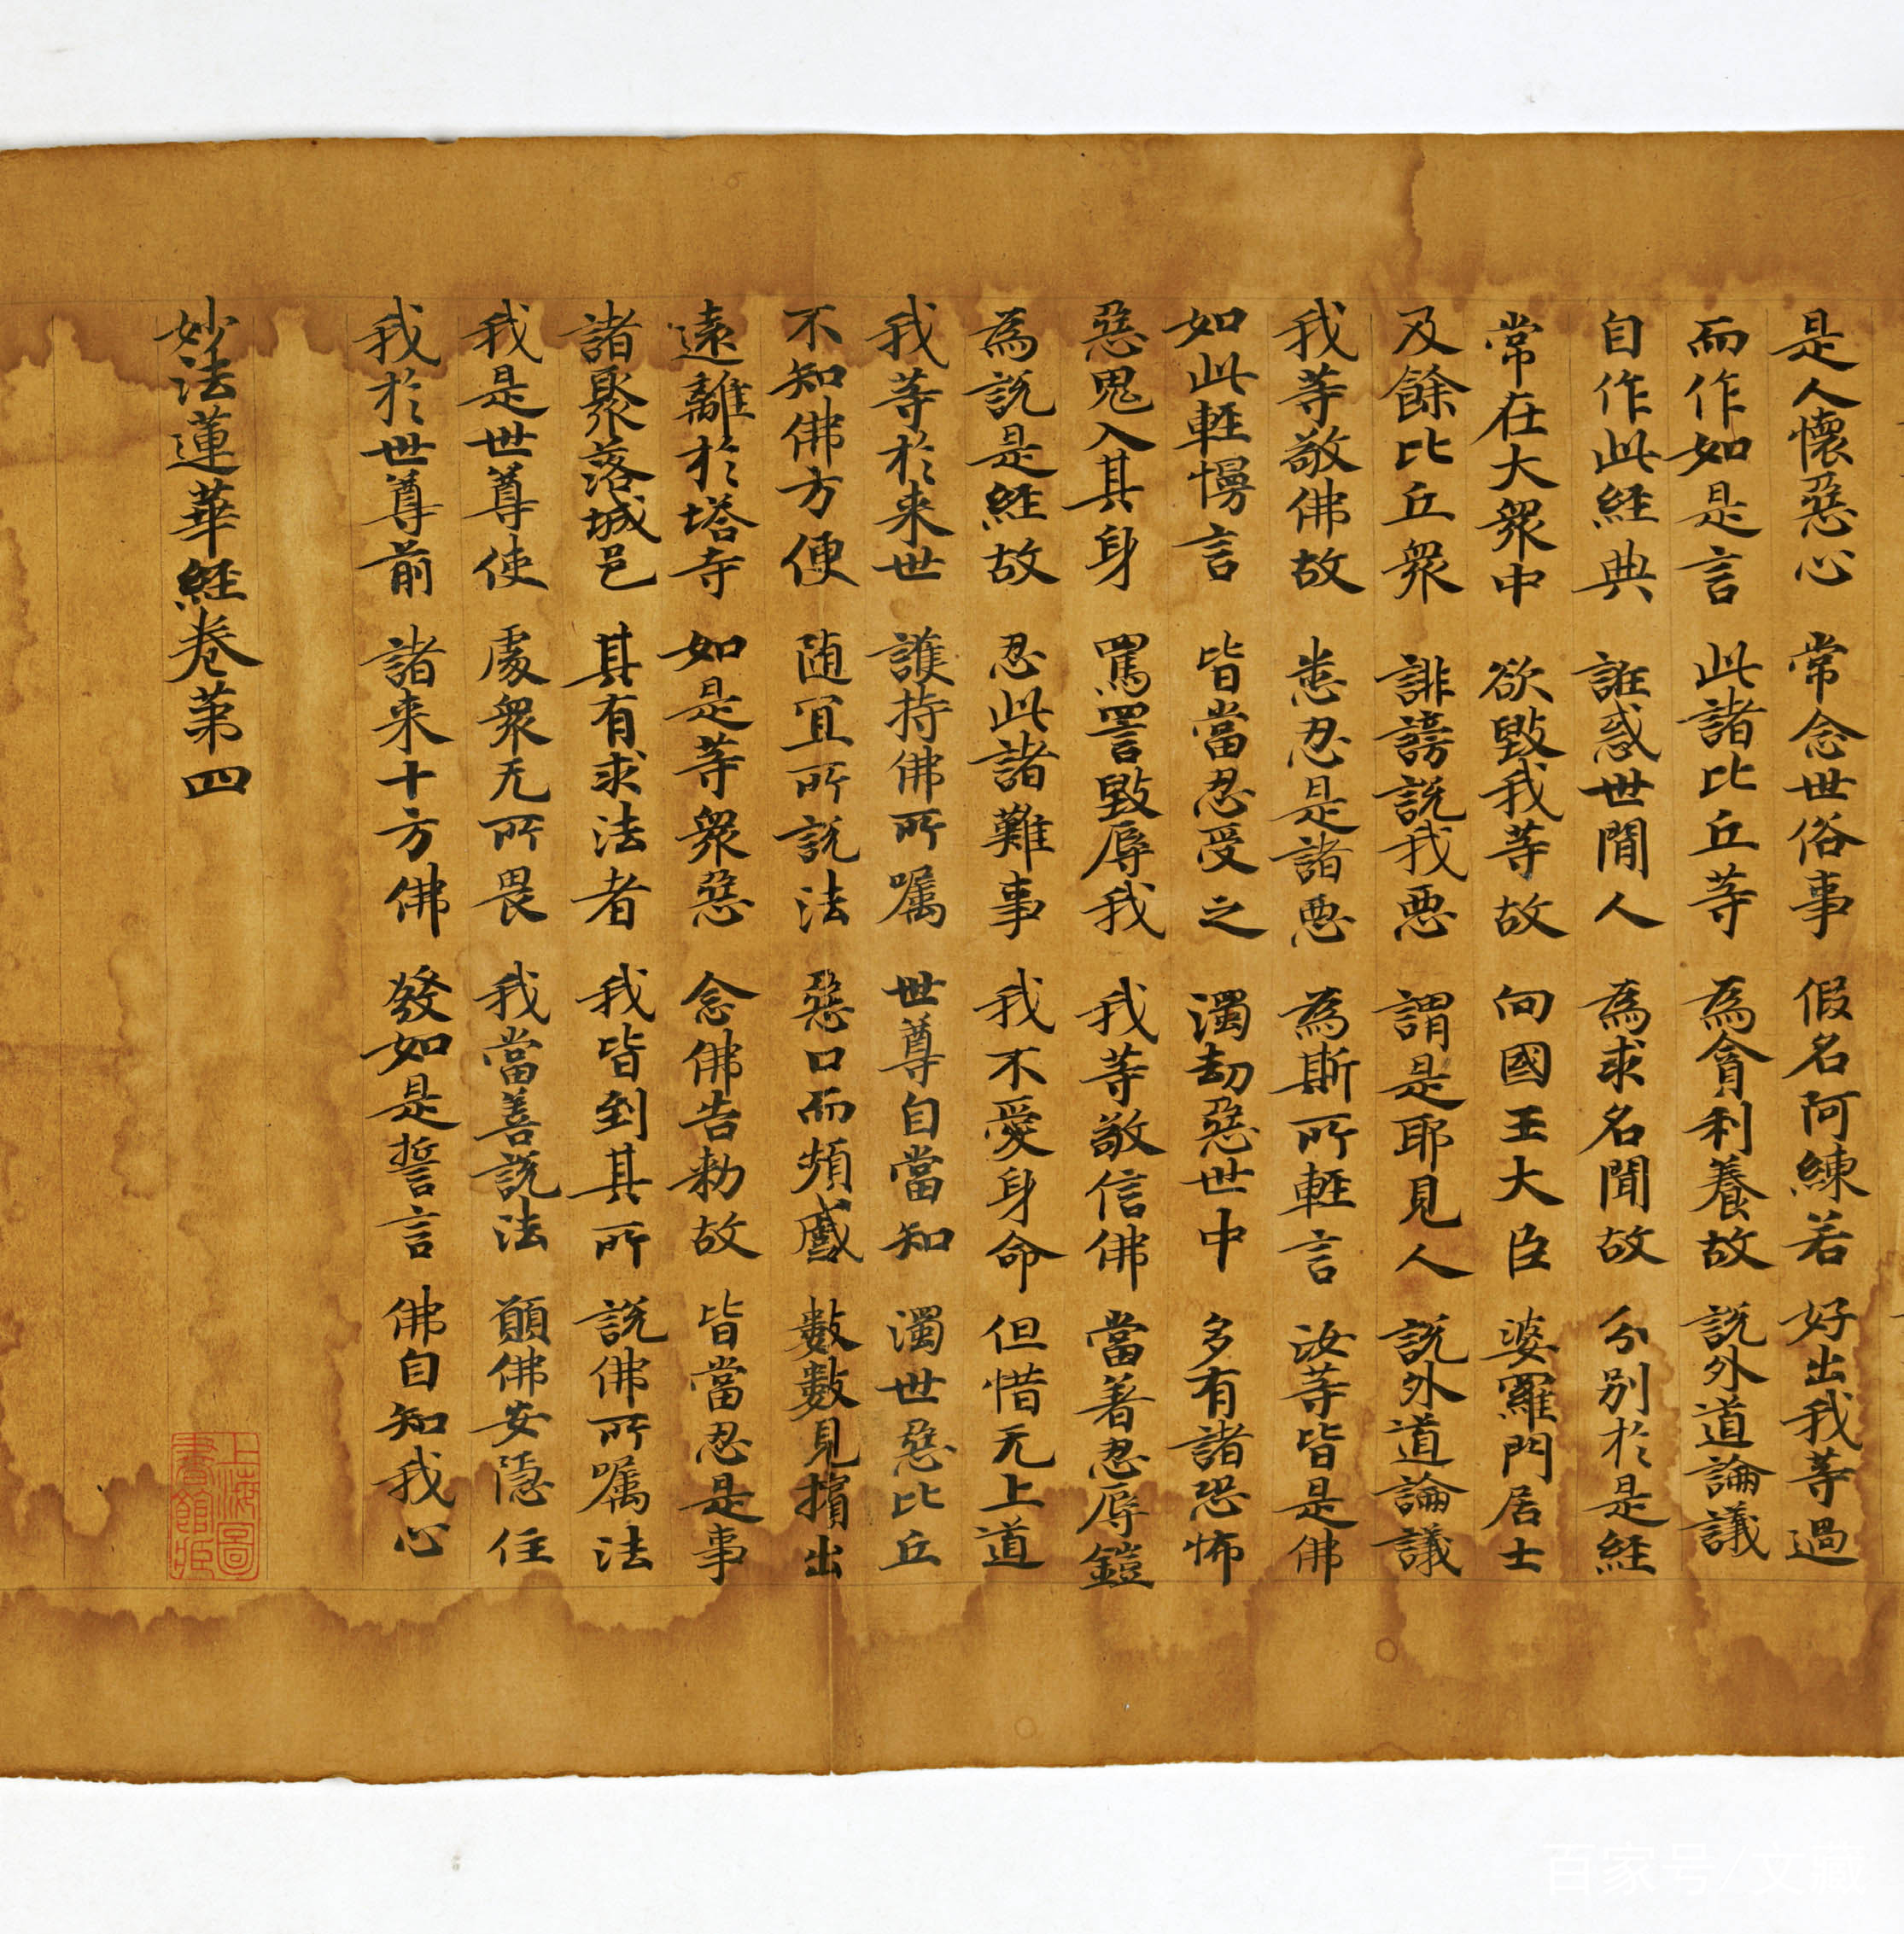 是人懷惡心 常念世俗事 假名阿練若 好出我等過
而作如是言 此諸比丘等 為貪利養故 說外道論議
自作此經典 誑惑世間人 為求名聞故 分別於是經
常在大衆中 欲毀我等故 向國王大臣 婆羅門居士
及餘比丘衆 誹謗說我惡 謂是耶見人 說外道論議
我等敬佛故 悉忍是諸惡 為斯所輕言 汝等皆是佛
如此輕慢言 皆當忍受之 濁劫惡世中 多有諸恐怖
惡鬼入其身 罵詈毀辱我 我等敬信佛 當著忍辱鎧
為說是經故 忍此諸難事 我不愛身命 但惜无上道
我等於来世 護持佛所嘱 世尊自當知 濁世惡比丘
不知佛方便 随宜所說法 惡口而頻蹙 數數見擯出
遠離於塔寺 如是等衆惡 念佛告勑故 皆當忍是事
諸聚落城邑 其有求法者 我皆到其所 說佛所嘱法
我是世尊使 處衆无所畏 我當善說法 願佛安隱住
我於世尊前 諸来十方佛 發如是誓言 佛自知我心
妙法蓮華經卷第四
上海圖書館藏
百家号/文藏